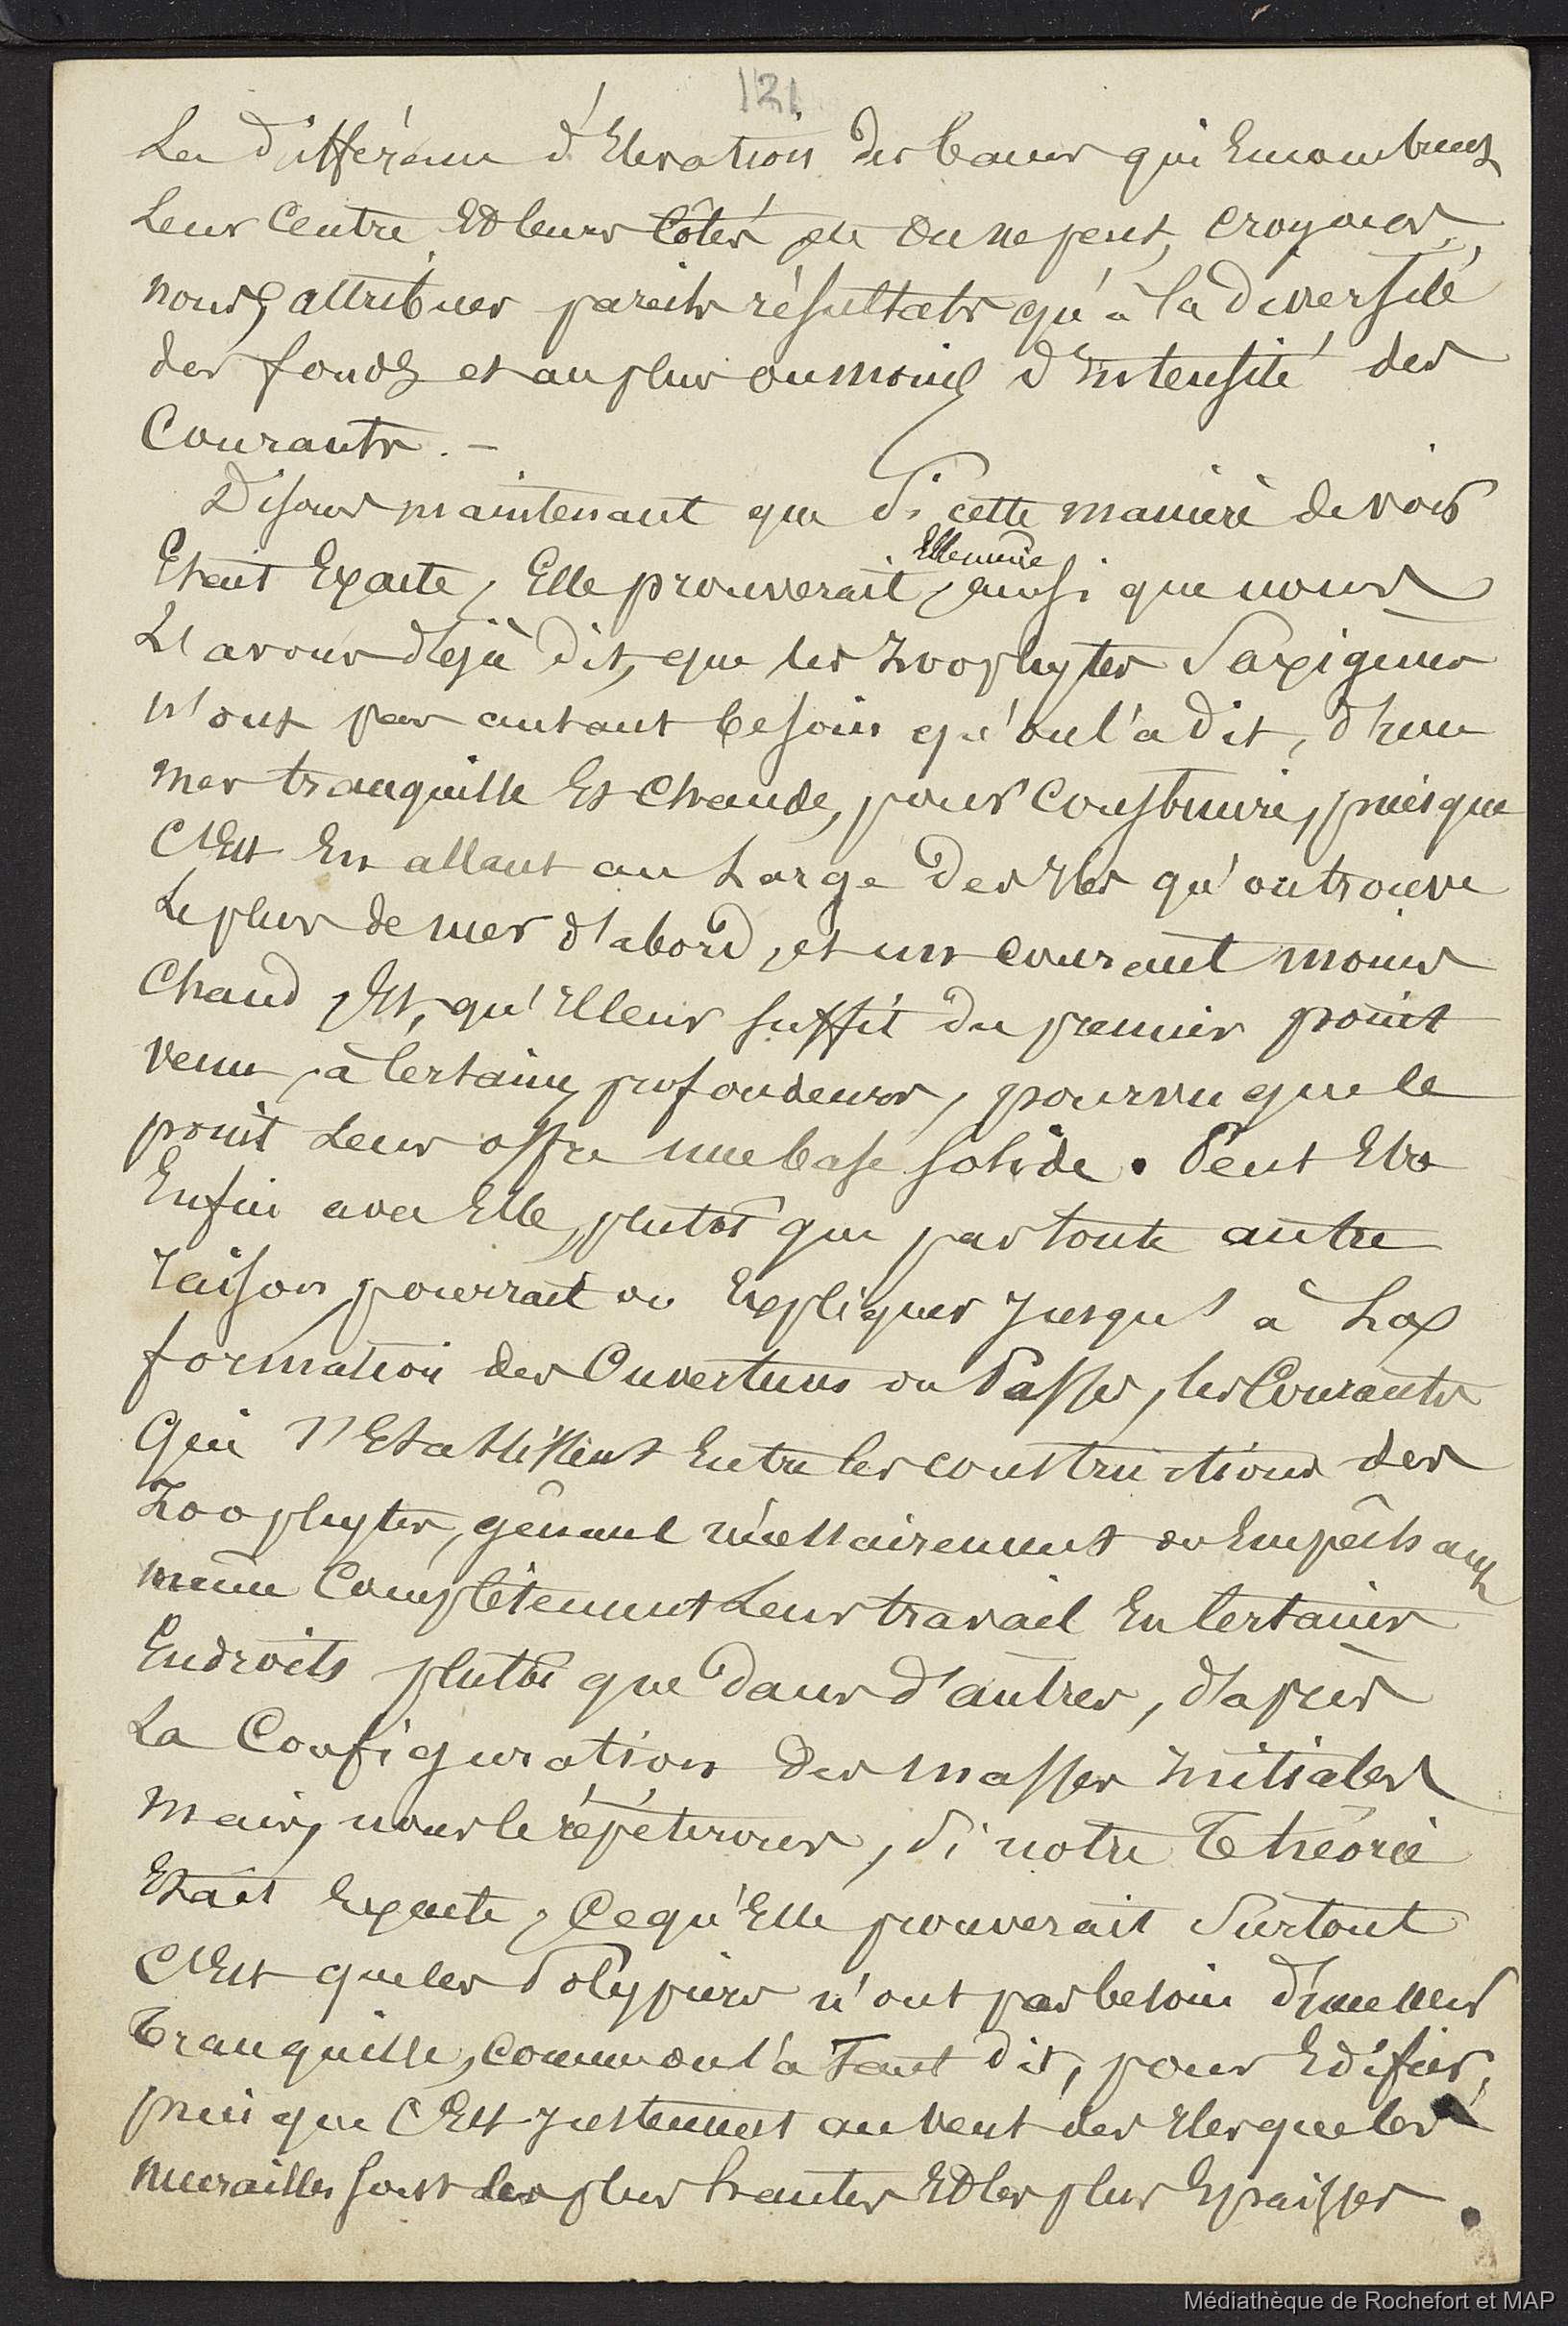 121
La différence d'Elévation des bancs qui Encombrent
Leur Centre Et leurs Côtés et on ne peut, croyons,
nous, attribuer pareils résultats qu'à la diversité
des fonds et au plus ou moins d'Intensité des
Courants. -
Disons maintenant que Si cette manière de voir
Etait Exacte, Elle prouverait, Elle même, ainsi que nous
L'avons déjà dit, que les Zoophytes Saxigènes
n'ont pas autant besoin qu'on l'a dit, d'une
mer tranquille Et Chaude, pour Construire, puisque
C'Est En allant au Large des Iles qu'on trouve
Le plus de mer d'abord, et un courant moins
Chaud, Et, qu'Il leur suffit du premier point
venu, à Certaines profondeurs, pourvu que le
point Leur offre une base solide. Peut Etre
Enfin avec Elle, plutôt que par toute autre
raison, pourrait on Expliquer Jusqu'à La
formation des Ouvertures ou Passes, les Courants
Qui s'Etablissent Entre les constructions des
Zoophytes, gênant nécessairement ou Empêchant
même Complètement Leur travail En Certains
Endroits plutôt que dans d'autres, d'après
La Configuration des masses Initiales
Mais, nous le répéterons, Si notre Théorie
Etait Exacte, Ce qu'Elle prouverait Surtout
C'Est que les Polypiers n'ont pas besoin d'une mer
Tranquille, comme on l'a Tant dit, pour Edifier,
puisque C'Est Justement au vent des Iles que les
murailles sont les plus hautes Et les plus Epaisses.
Médiathèque de Rochefort et MAP